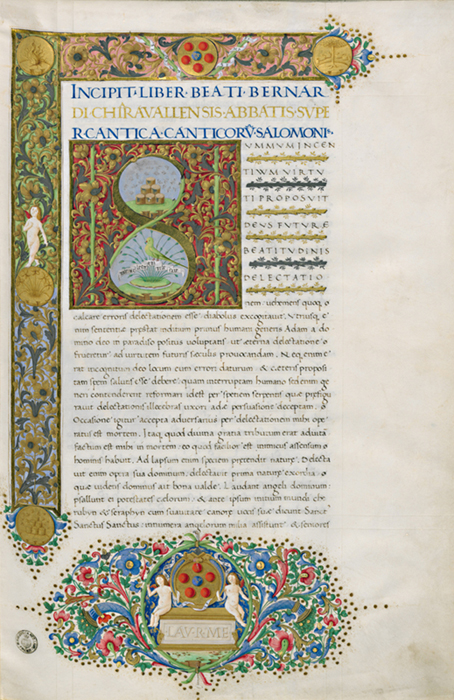 INCIPIT·LIBER·BEATI·BERNAR
DI·CHIRAVALLENSIS·ABBATIS·SVPE
R·CANTICA·CANTICORV̄·SALOMONI
VMMVM INCEN
TIVM VIRTV
TI PROPOSVIT
DEVS FVTVRE
BEATITVDINIS
DELECTATIO
nem: uehemens quoq; o
calcare erroris delectationem esse diabolus excogitauit. Vtriusq; e
nim sententiæ prestat inditium primus humani generis Adam a do
mino deo in paradiso positus uoluptatis: ut æterna delectatione
frueretur ad uirtutem futuri seculi prouocandam. N eq; enim e
rat incognitum deo locum cum errori daturum & cæteris proposi
tam spem salutis esse debere: quam interruptam humano
contenderet reformari idest per speciem serpentis
rauit delectationis illecebras uxori adæ persuasione deceptam.
Occasione igitur accepta aduersarius per delectationem mihi ope
ratus est mortem. I taq; quod diuina gratia tributum erat ad uitā
factum est mihi in mortem: eo quod facilior est inimicus assensum
hominis habuit. Ad lapsum enim speciem pretendit naturæ. Delecta
uit enim opera sua dominum: delectauit prima naturæ
quæ uidens dominus ait bona ualde. Laudant angeli dominum:
psallunt ei potestates cælorum: & ante ipsum initium mundi che
rubyn & seraphyn cum suauitate canoræ uocis suæ dicunt Sanct
Sanctus Sanctus: innumera angelorum milia assistunt & seniores
LAV·R·ME